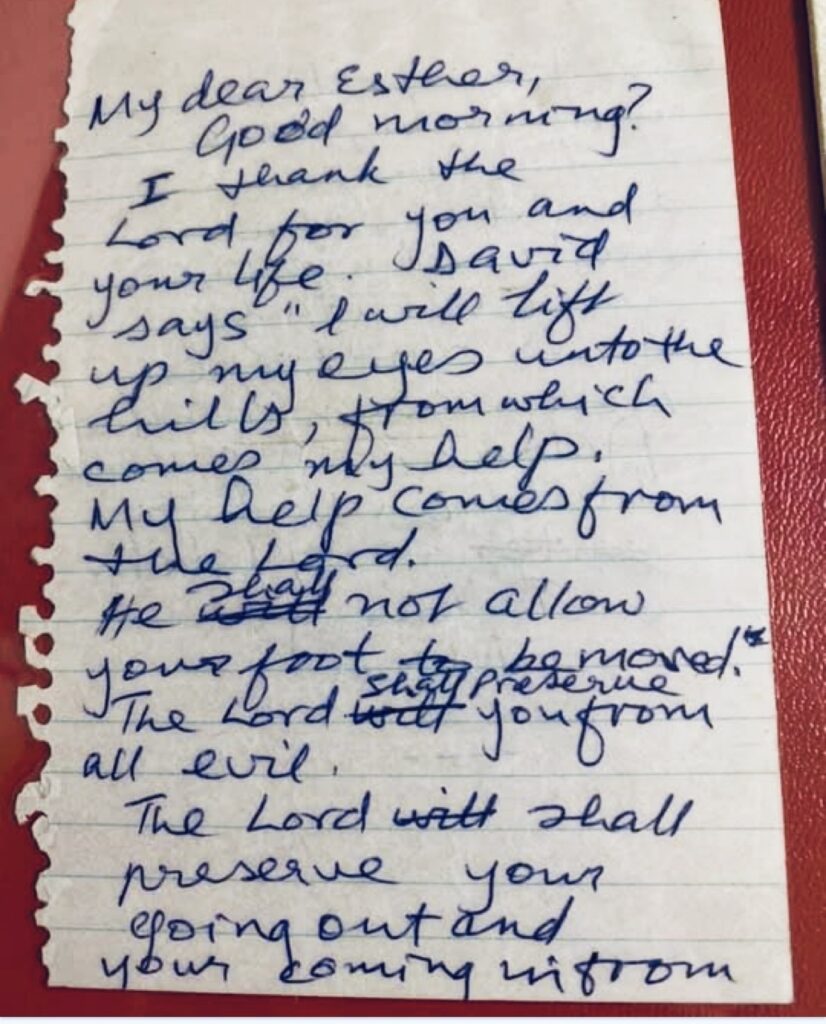 My dear Esther,
Good morning?
I thank the
Lord for you and
your life. David
says "I will lift
up my eyes unto the
hills, from which
comes my help.
My help comes from
the Lord.
He will shall not allow
your foot to be moved."
The Lord will shall preserve you from
all evil.
The Lord will shall
preserve your
going out and
your coming in from